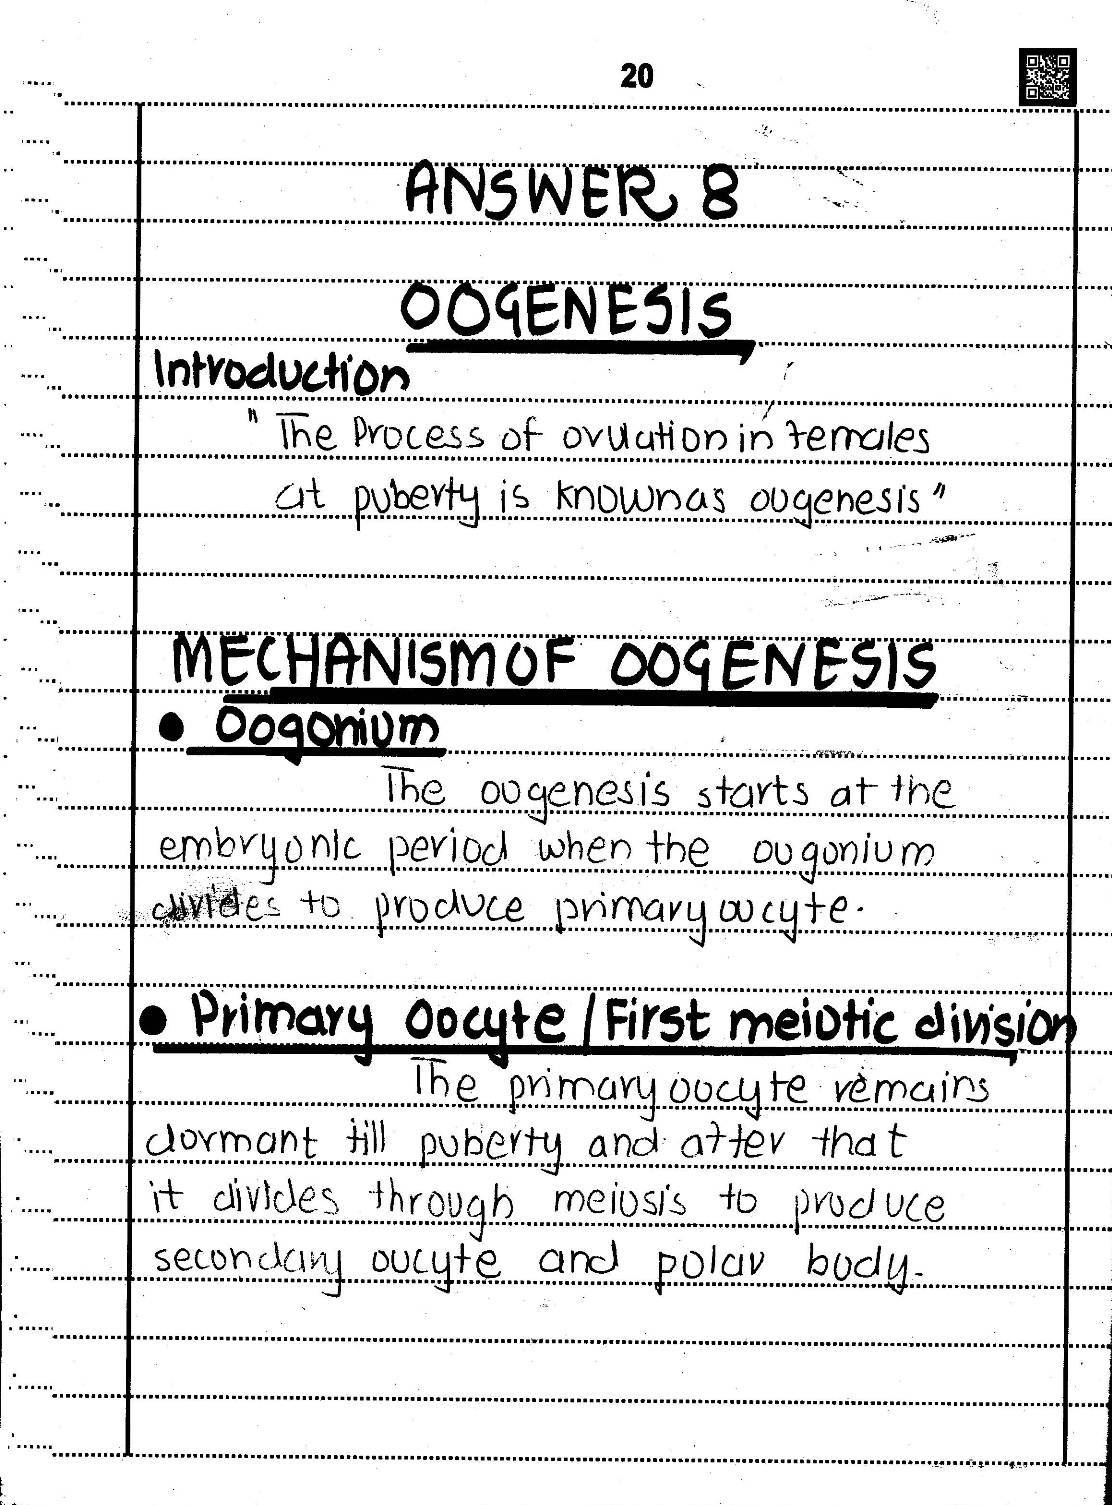 20
ANSWER 8
OOGENESIS
Introduction
" The Process of ovulation in females
at puberty is known as oogenesis "
MECHANISM OF OOGENESIS
• Oogonium
The oogenesis starts at the
embryonic period when the oogonium
divides to produce primary oocyte.
• Primary Oocyte / First meiotic division
The primary oocyte remains
dormant till puberty and after that
it divides through meiosis to produce
secondary oocyte and polar body.